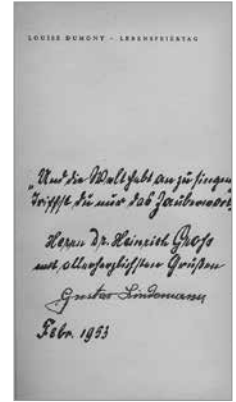 LOUISE DUMONT – LEBENSFEIERTAG
„Und die Welt hebt an zu singen
Triffst du nur das Zauberwort."
Herrn Dr. Heinrich Groß
mit allerherzlichsten Grüßen
Gustav Lindemann
Febr. 1953